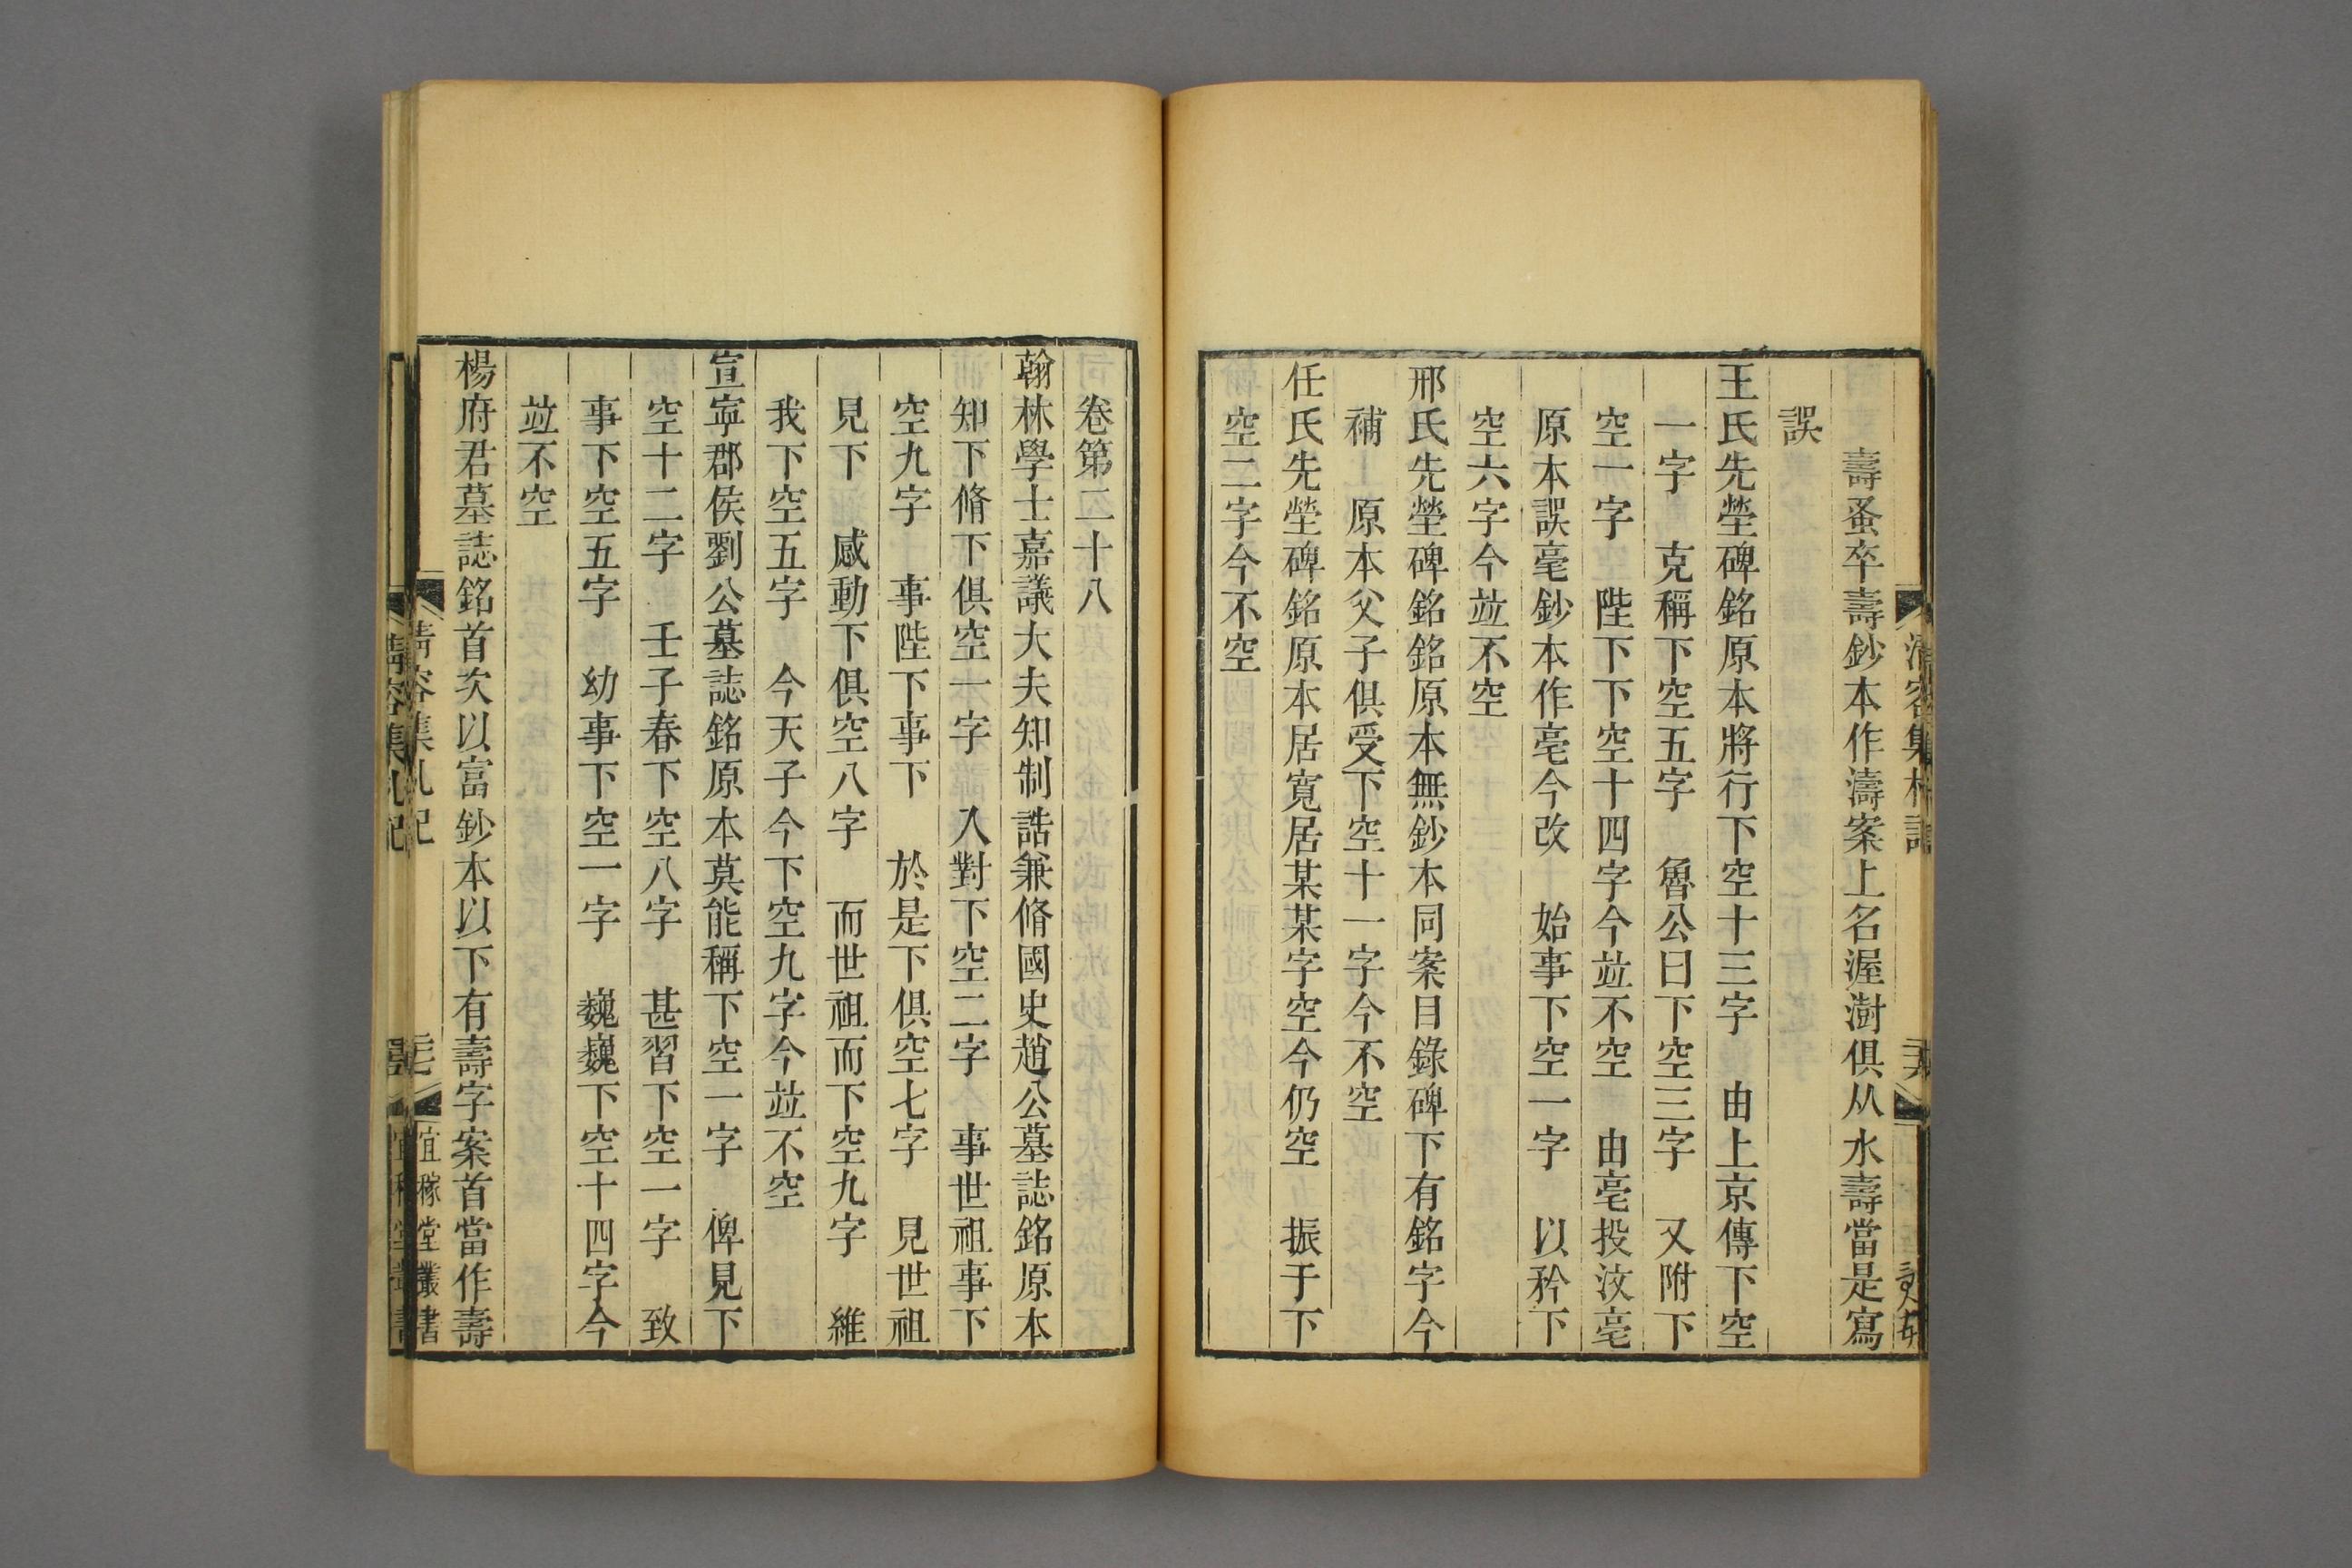 壽蚤卒壽鈔本作濤案上名渥澍俱从水壽當是寫
誤
王氏先塋碑銘原本將行下空十三字　由上京傳下空
一字　克稱下空五字　魯公曰下空三字　又附下
空一字　陛下下空十四字今竝不空　由亳投汶亳
原本誤毫鈔本作亳今改　始事下空一字　以矜下
空六字今竝不空
邢氏先塋碑銘銘原本無鈔本同案目錄碑下有銘字今
補　原本父子俱受下空十一字今不空
任氏先塋碑銘原本居寬居某某字空今仍空　振于下
空二字今不空
卷第二十八
翰林學士嘉議大夫知制誥兼脩國史趙公墓誌銘原本
知下脩下俱空一字　入對下空二字　事世祖事下
空九字　事陛下事下　於是下俱空七字　見世祖
見下　感動下俱空八字　而世祖而下空九字　維
我下空五字　今天子今下空九字今竝不空
宣寧郡侯劉公墓誌銘原本莫能稱下空一字　俾見下
空十二字　壬子春下空八字　甚習下空一字　致
事下空五字　幼事下空一字　巍巍下空十四字今
竝不空
楊府君墓誌銘首次以富鈔本以下有壽字案首當作壽
清容集札記
宜稼堂叢書